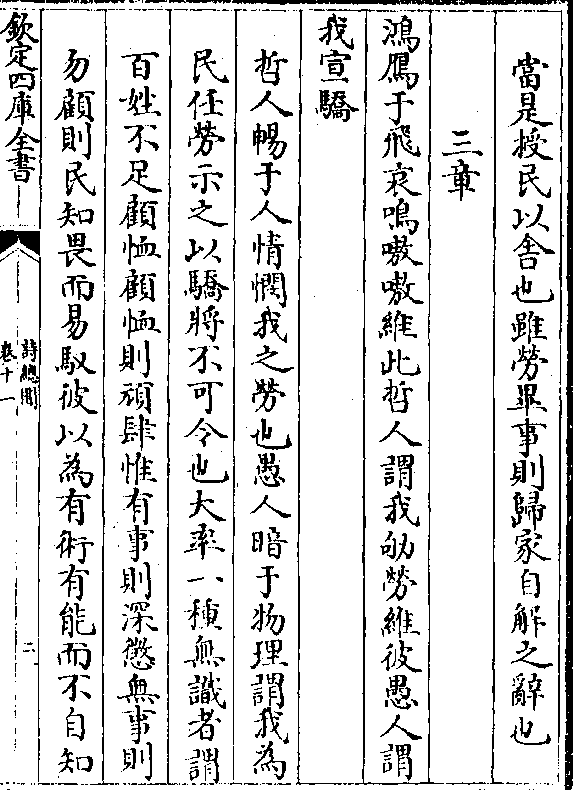 當是授民以舍也雖勞畢事則歸家自解之辭也
三章
鴻鴈于飛哀鳴嗷嗷維此哲人謂我劬勞維彼愚人謂
我宣驕
哲人暢于人情憫我之勞也愚人暗于物理謂我為
民任勞示之以驕將不可令也大率一種無識者謂
百姓不足顧恤顧恤則頑肆惟有事則深懲無事則
勿顧則民知畏而易馭彼以為有術有能而不自知
欽定四庫全書
詩總聞
卷十一
二